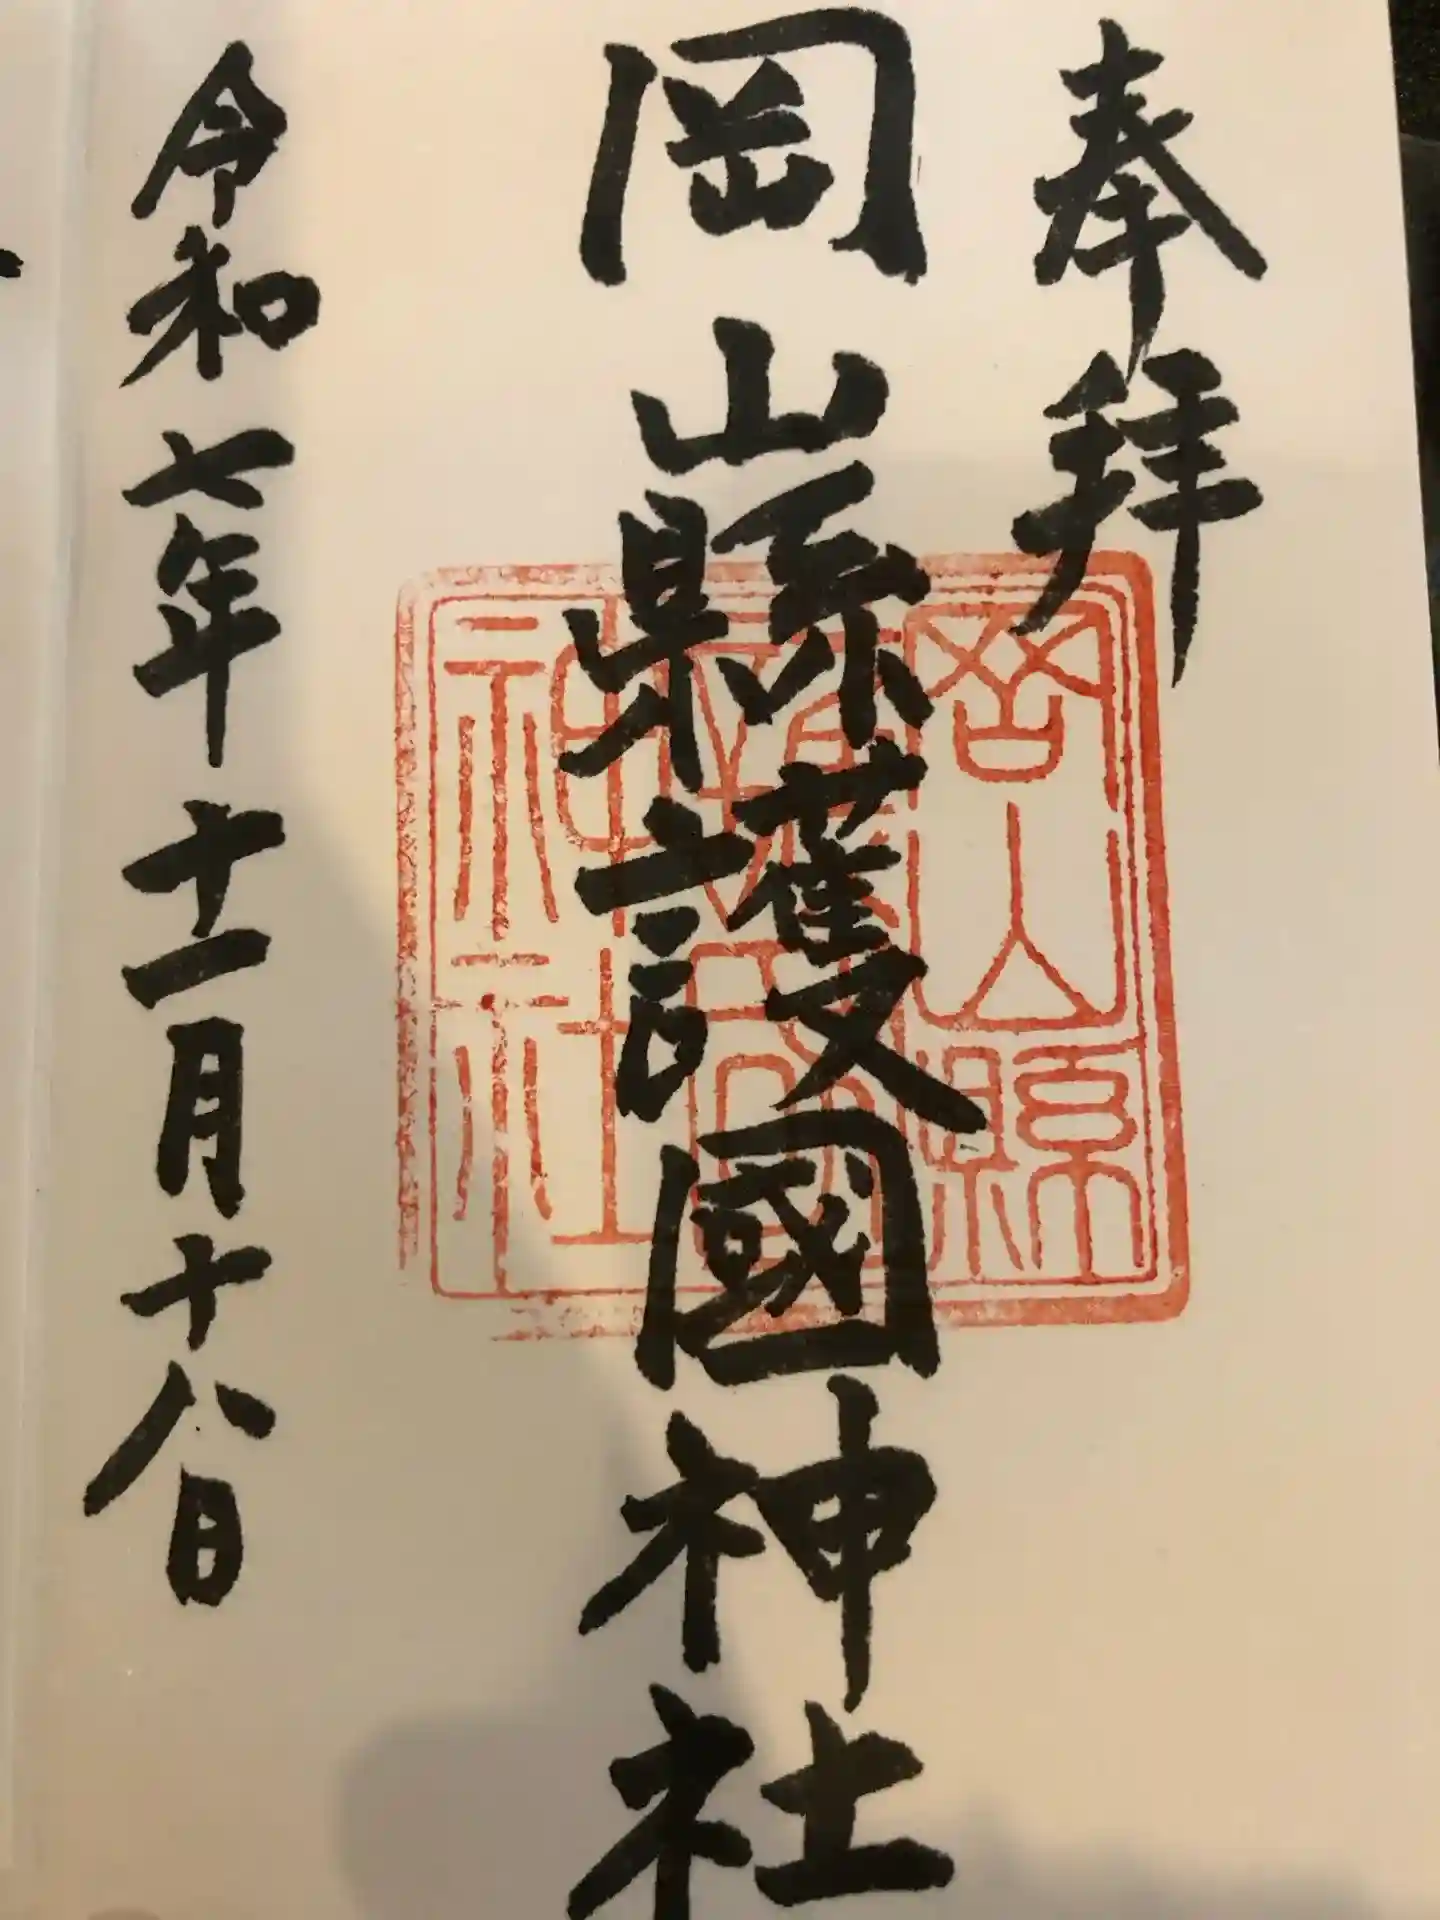 奉拜
岡山縣護國神社
令和七年十一月十八日
岡山縣
護國
神社